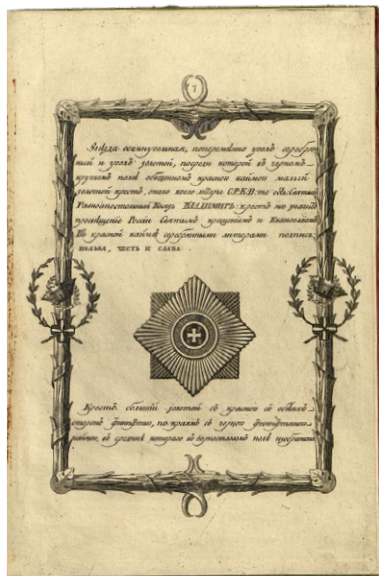 7
Звѣзда осмиугольная, поперемѣнно уголъ серебря-
ный и уголъ золотой, посреди которой въ черномъ
кругломъ полѣ обведенномъ красною каймою малый
золотой крестъ, около коего литеры С.Р.К.В: то есть Святый
Равноапостольный Князь ВЛАДИМИРЪ: крестъ же значитъ
просвѣщеніе Россіи Святымъ крещеніемъ и Евангеліемъ
Въ красной каймѣ серебреными литерами надпись,
ПОЛЬЗА, ЧЕСТЬ И СЛАВА
Крестъ большій золотой съ красною съ обѣихъ
сторонъ финифтью, по краямъ съ черною финифтяною
каймою, въ срединѣ котораго въ горностаевомъ полѣ изображено